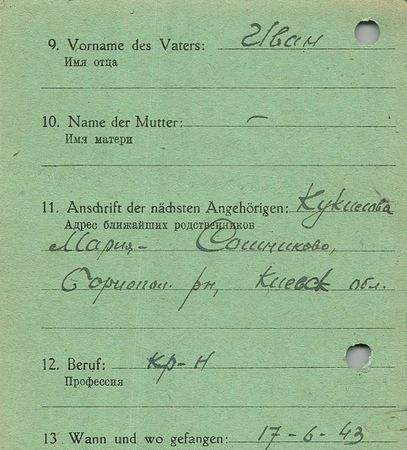 9. Vorname des Vaters: Иван
Имя отца
10. Name der Mutter: –
Имя матери
11. Anschrift der nächsten Angehörigen:
Адрес ближайших родственников
Мария – Сошниково,
Бориспол. рн, Киевск обл.
12. Beruf: кр-н
Профессия
13 Wann und wo gefangen: 17-6-43